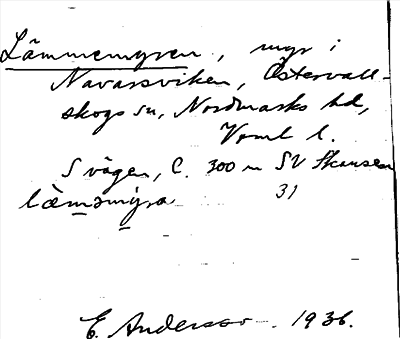 Lämmemyren, myr i
Navarsviken, Östervall-
skogs sn, Nordmarks hd,
Verml l.
S vägen, C. 300 m SV Skansen
31
læmǝmyra
E. Andersson. 1936.